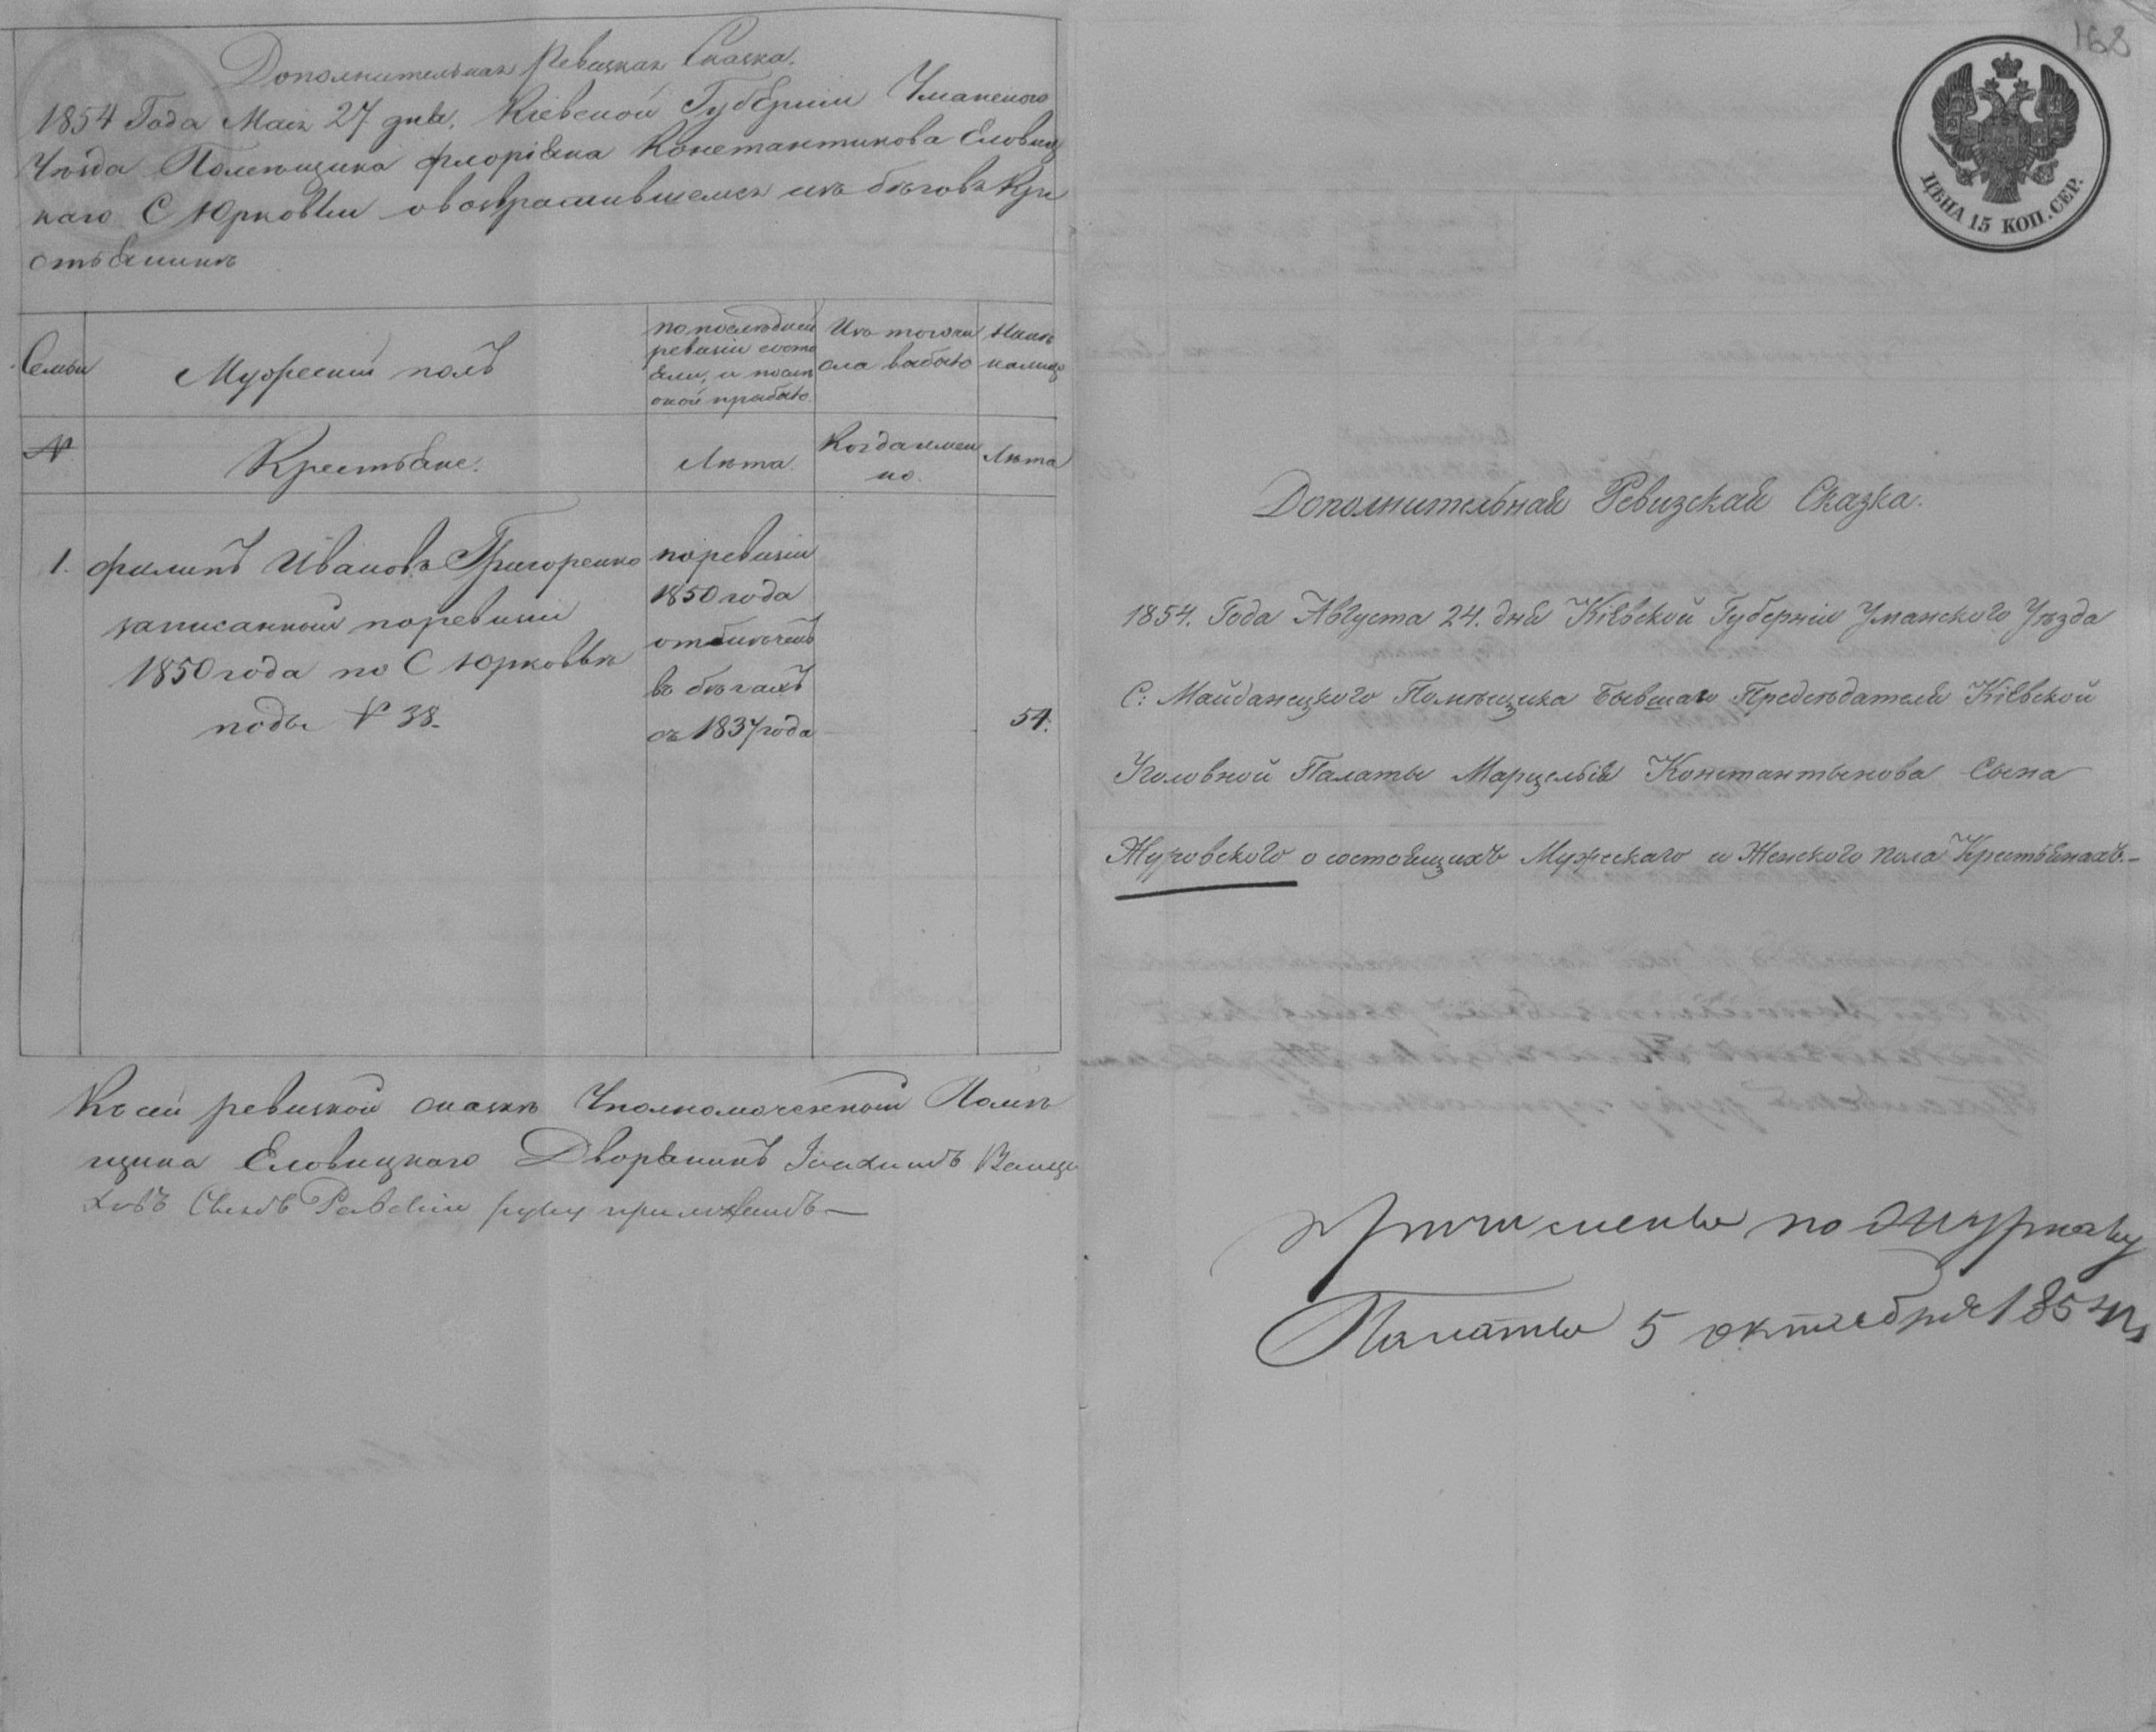 Дополнительная Ревизкая Сказка.
1854 Года Мая 27 дня. Кіевской Губерніи Уманского
Уѣзда Помѣщика Флоріяна Константинова Еловиц
каго С Юрковки овозвратившемся изъ бѣговъ Кре
стьянинѣ
Семьи
Мужеский полъ
по последней
ревизіи состо
яли, и после
оной прибыло
Изъ того чи
сла выбыло
Нынѣ
налицо
№
Крестьяне.
Лѣта.
Когда имен
но.
Лѣта
1.
Филипъ Ивановъ Григоренко
записанный поревизіи
1850 года по С Юрковкѣ
подъ № 38.
поревизіи
1850 года
отмѣченъ
въ бѣгахъ
съ 1837 года
54.
Къ сей ревизкой сказкѣ Уполномоченный Помѣ
щика Еловицкаго Дворянинъ Іоахимъ
Сынъ руку приложилъ
168
ЦѢНА 15 КОП. СЕР.
Дополнительная Ревизская Сказка.
1854. Года Августа 24. дня Кіевской Губерніи Уманского Уѣзда
С: Майданецкого Помѣщика Бывшаго Предсѣдателя Кіевской
Уголовной Палаты Марцелія Константынова Сына
Журовского о состоящихъ Мужескаго и Женского пола Крестьянахъ.
Причислены по Журналу
Палаты 5 октября 1854 г